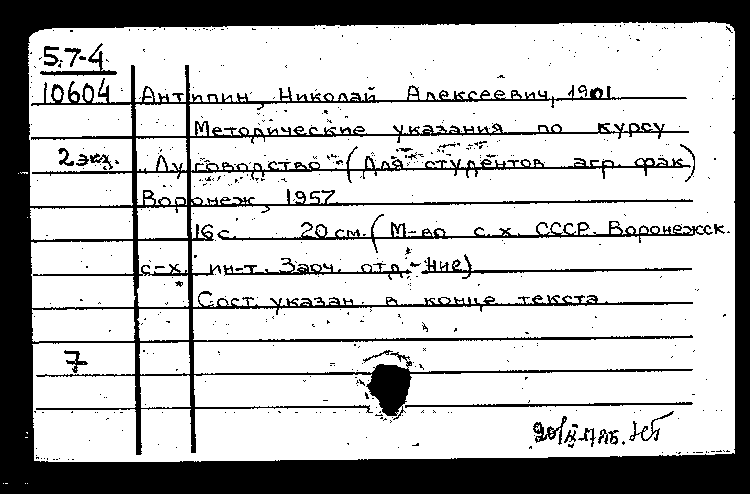 5.7-4
10604 Антипин, Николай Алексеевич, 1901
Методические указания по курсу
2 экз. "Луговодство" (Для студентов агр. фак)
Воронеж, 1957
16 с. 20 см. (М-во с. х. СССР. Воронежск.
с-х. ин-т. Заоч. отд-ние)
Сост. указан в конце текста
7